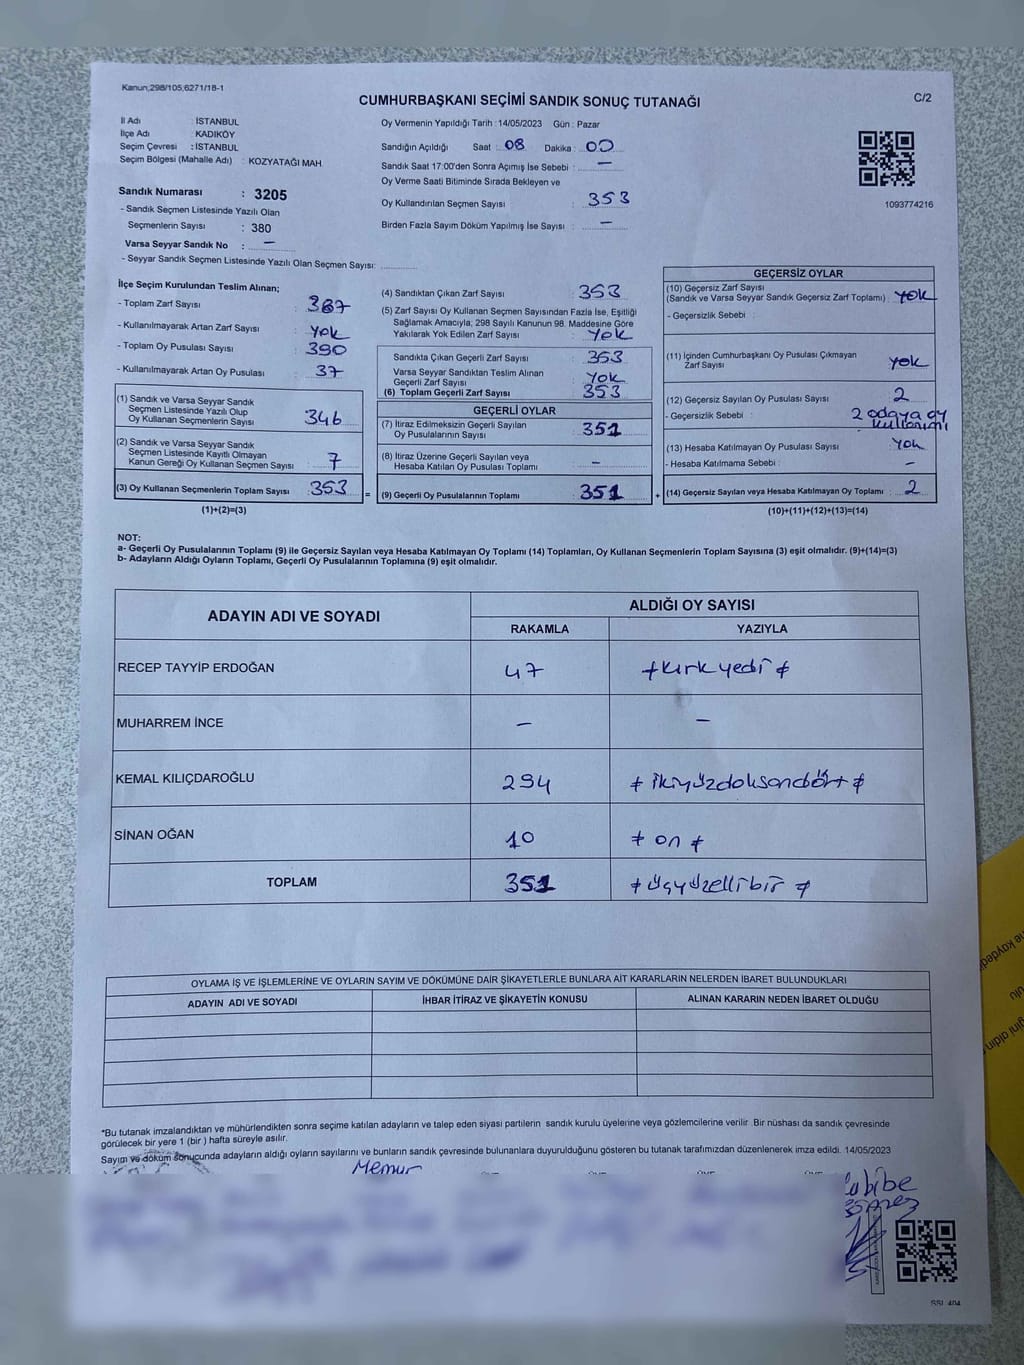 Kanun;298/105;6271/18-1
CUMHURBAŞKANI SEÇİMİ SANDIK SONUÇ TUTANAĞI
C/2
İl Adı : İSTANBUL
İlçe Adı : KADIKÖY
Seçim Çevresi : İSTANBUL
Seçim Bölgesi (Mahalle Adı) : KOZYATAĞI MAH.
Sandık Numarası : 3205
- Sandık Seçmen Listesinde Yazılı Olan
Seçmenlerin Sayısı : 380
Varsa Seyyar Sandık No : —
- Seyyar Sandık Seçmen Listesinde Yazılı Olan Seçmen Sayısı:
Oy Vermenin Yapıldığı Tarih : 14/05/2023 Gün : Pazar
Sandığın Açıldığı Saat : 08 Dakika : 00
Sandık Saat 17:00'den Sonra Açımış İse Sebebi : —
Oy Verme Saati Bitiminde Sırada Bekleyen ve
Oy Kullandırılan Seçmen Sayısı : 353
Birden Fazla Sayım Döküm Yapılmış İse Sayısı : —
1093774216
İlçe Seçim Kurulundan Teslim Alınan;
- Toplam Zarf Sayısı : 387
- Kullanılmayarak Artan Zarf Sayısı : Yok
- Toplam Oy Pusulası Sayısı : 390
- Kullanılmayarak Artan Oy Pusulası : 37
(1) Sandık ve Varsa Seyyar Sandık
Seçmen Listesinde Yazılı Olup
Oy Kullanan Seçmenlerin Sayısı : 346
(2) Sandık ve Varsa Seyyar Sandık
Seçmen Listesinde Kayıtlı Olmayan
Kanun Gereği Oy Kullanan Seçmen Sayısı : 7
(3) Oy Kullanan Seçmenlerin Toplam Sayısı : 353
(1)+(2)=(3)
(4) Sandıktan Çıkan Zarf Sayısı : 353
(5) Zarf Sayısı Oy Kullanan Seçmen Sayısından Fazla İse, Eşitliği
Sağlamak Amacıyla; 298 Sayılı Kanunun 98. Maddesine Göre
Yakılarak Yok Edilen Zarf Sayısı : Yok
Sandıkta Çıkan Geçerli Zarf Sayısı : 353
Varsa Seyyar Sandıktan Teslim Alınan
Geçerli Zarf Sayısı : Yok
(6) Toplam Geçerli Zarf Sayısı : 353
GEÇERLİ OYLAR
(7) İtiraz Edilmeksizin Geçerli Sayılan
Oy Pusulalarının Sayısı : 351
(8) İtiraz Üzerine Geçerli Sayılan veya
Hesaba Katılan Oy Pusulası Toplamı : —
= (9) Geçerli Oy Pusulalarının Toplamı : 351 +
GEÇERSİZ OYLAR
(10) Geçersiz Zarf Sayısı
(Sandık ve Varsa Seyyar Sandık Geçersiz Zarf Toplamı) : Yok
- Geçersizlik Sebebi :
(11) İçinden Cumhurbaşkanı Oy Pusulası Çıkmayan
Zarf Sayısı : Yok
(12) Geçersiz Sayılan Oy Pusulası Sayısı : 2
- Geçersizlik Sebebi : 2 adaya oy
kullanımı
(13) Hesaba Katılmayan Oy Pusulası Sayısı : Yok
- Hesaba Katılmama Sebebi : —
(14) Geçersiz Sayılan veya Hesaba Katılmayan Oy Toplamı : 2
(10)+(11)+(12)+(13)=(14)
NOT:
a- Geçerli Oy Pusulalarının Toplamı (9) ile Geçersiz Sayılan veya Hesaba Katılmayan Oy Toplamı (14) Toplamları, Oy Kullanan Seçmenlerin Toplam Sayısına (3) eşit olmalıdır. (9)+(14)=(3)
b- Adayların Aldığı Oyların Toplamı, Geçerli Oy Pusulalarının Toplamına (9) eşit olmalıdır.
ADAYIN ADI VE SOYADI ALDIĞI OY SAYISI
RAKAMLA YAZIYLA
RECEP TAYYİP ERDOĞAN 47 ≠ kırkyedi ≠
MUHARREM İNCE — —
KEMAL KILIÇDAROĞLU 294 ≠ ikiyüzdoksandört ≠
SİNAN OĞAN 10 ≠ on ≠
TOPLAM 351 ≠ üçyüzellibir ≠
OYLAMA İŞ VE İŞLEMLERİNE VE OYLARIN SAYIM VE DÖKÜMÜNE DAİR ŞİKAYETLERLE BUNLARA AİT KARARLARIN NELERDEN İBARET BULUNDUKLARI
ADAYIN ADI VE SOYADI İHBAR İTİRAZ VE ŞİKAYETİN KONUSU ALINAN KARARIN NEDEN İBARET OLDUĞU
*Bu tutanak imzalandıktan ve mühürlendikten sonra seçime katılan adayların ve talep eden siyasi partilerin sandık kurulu üyelerine veya gözlemcilerine verilir. Bir nüshası da sandık çevresinde
görülecek bir yere 1 (bir ) hafta süreyle asılır.
Sayım ve döküm sonucunda adayların aldığı oyların sayılarını ve bunların sandık çevresinde bulunanlara duyurulduğunu gösteren bu tutanak tarafımızdan düzenlenerek imza edildi. 14/05/2023
Memur